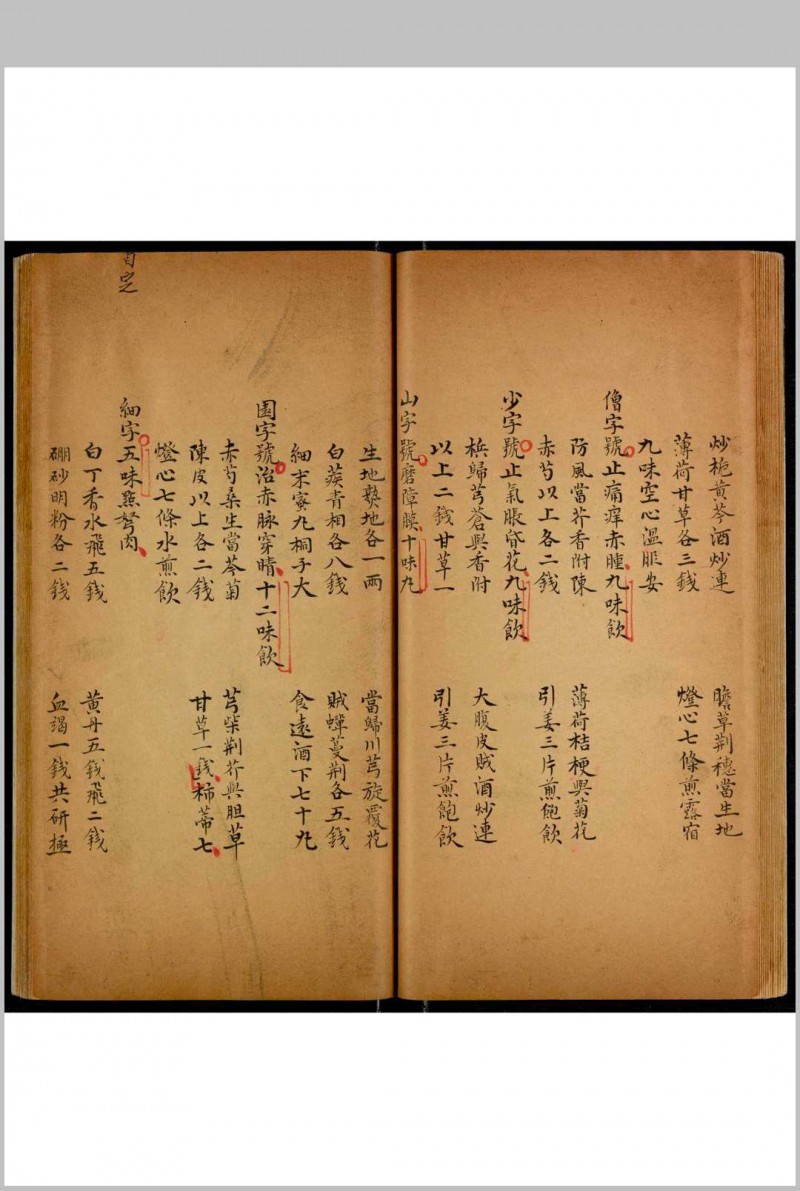 炒梔黃芩酒炒連　膽草荆穗當生地
薄荷甘草各三錢　燈心七條煎露宿
九味空心溫服安
僧字號止痛痒赤腫九味飲
防風當芥香附陳　薄荷桔梗與菊花
赤芍以上各二錢　引姜三片煎飽飲
少字號止氣脹昏花九味飲
梹歸芎蒼與香附　大腹皮賊酒炒連
以上二錢甘草一　引姜三片煎飽飲
山字號磨障膜十味丸
生地熟地各一兩　當歸川芎旋覆花
白蒺青相各八錢　賊蟬蔓荆各五錢
細末蜜丸桐子大　食遠酒下七十丸
園字號治赤脉穿睛十二味飲
赤芍桑生當芩菊　芎柴荆芥與胆草
陳皮以上各二錢　甘草一錢柿蒂七
燈心七條水煎飲
細字五味點胬肉
白丁香水飛五錢　黃丹五錢飛二錢
硼砂明粉各二錢　血竭一錢共研極